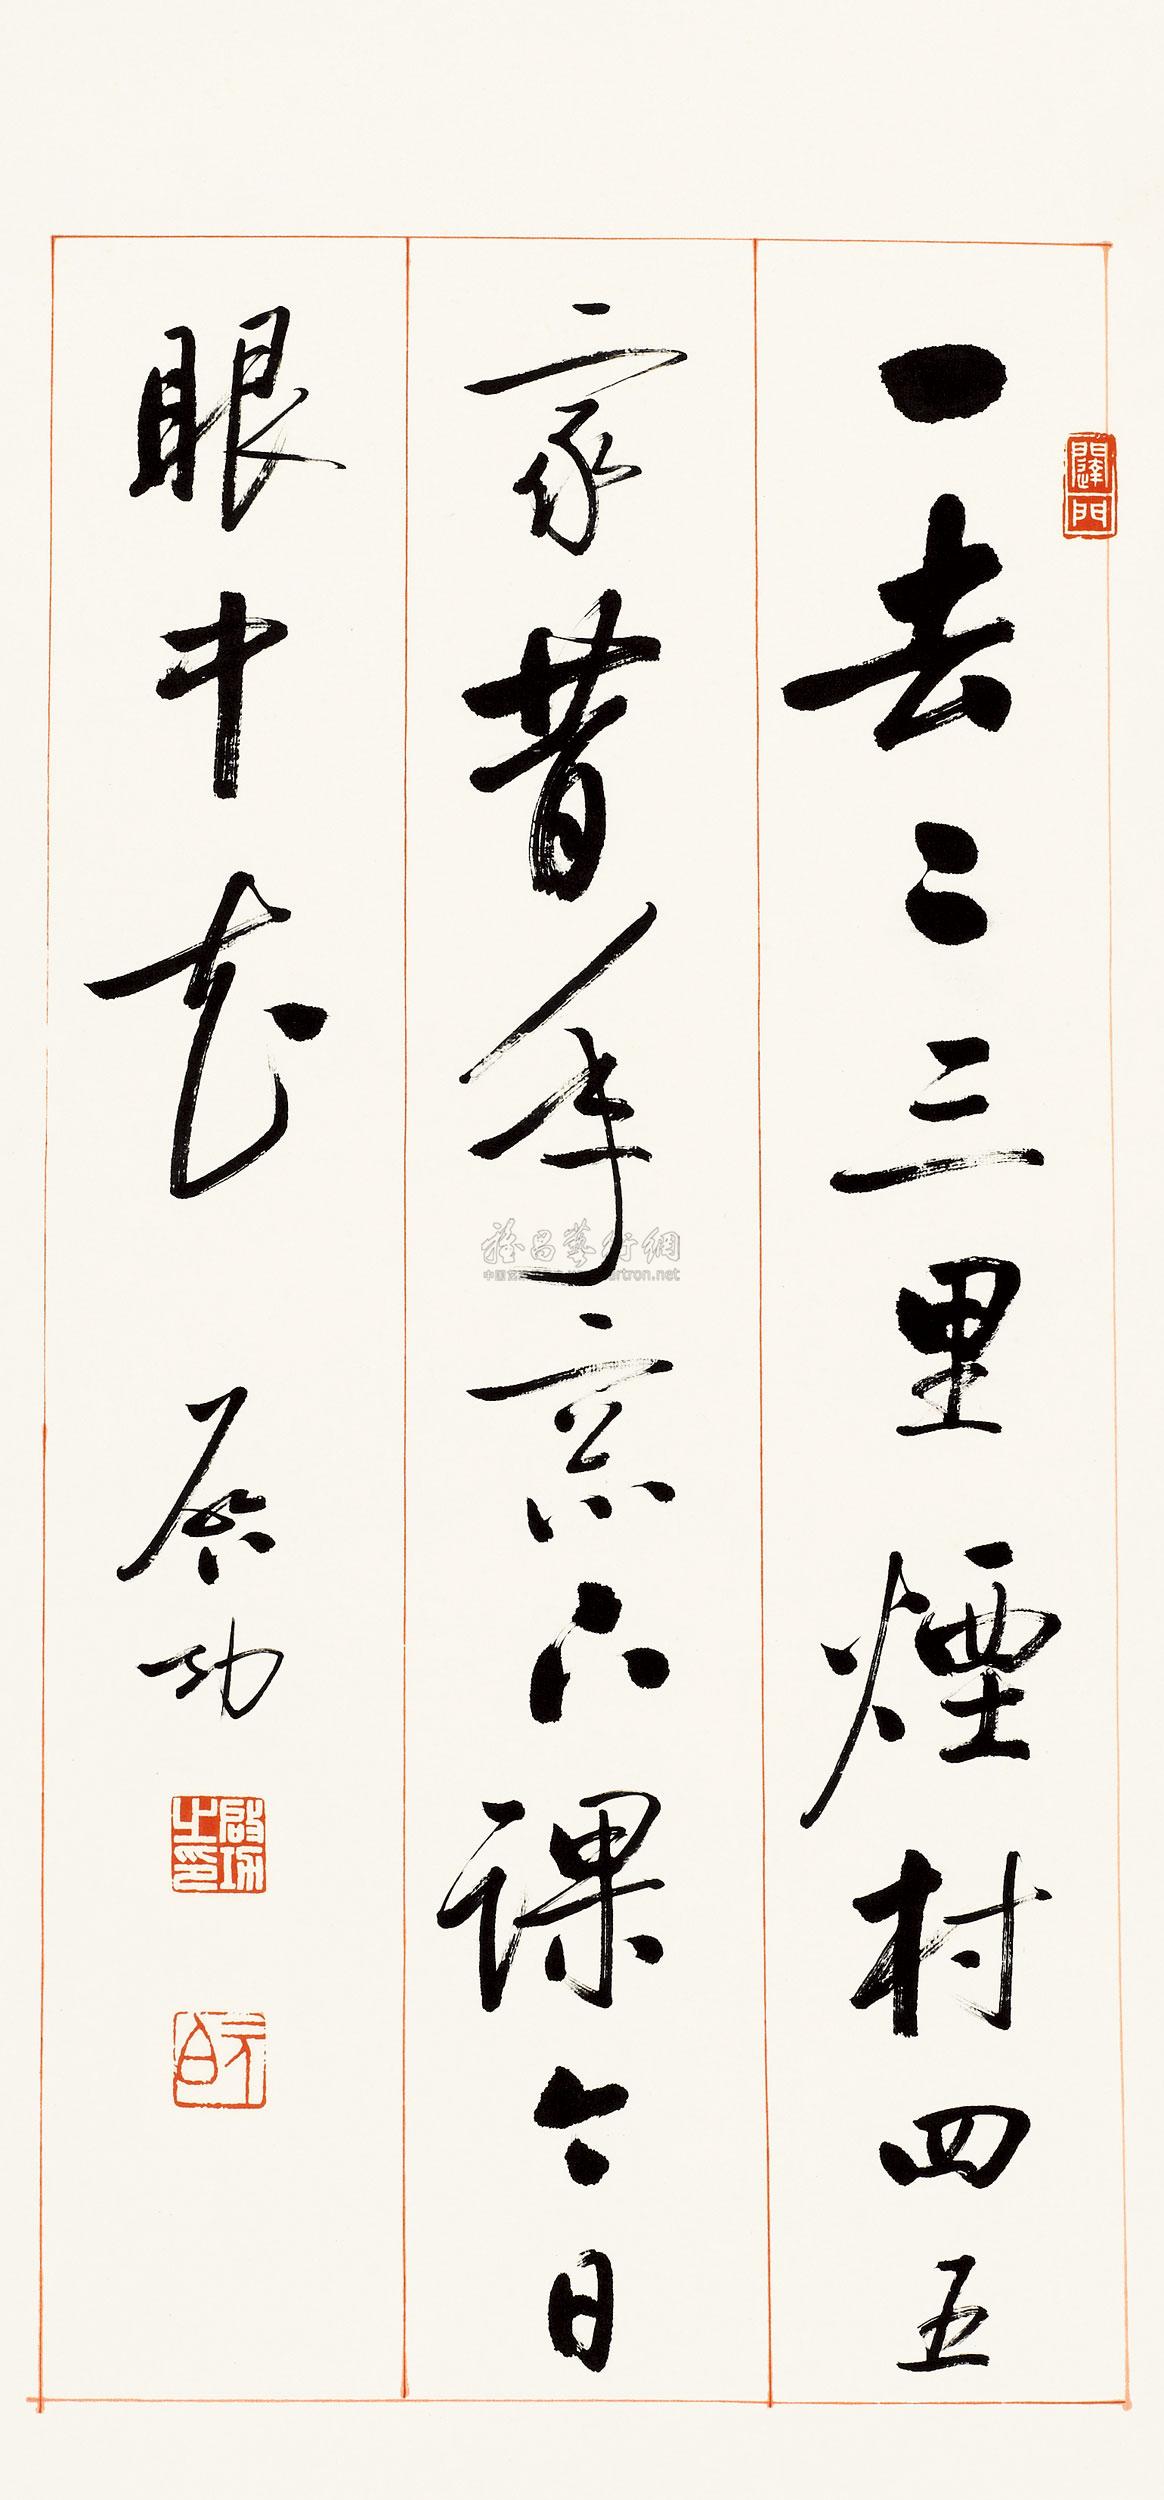 一去二三里煙村四五
家昔年蒙下課今日
眼中花
启功
啟功之印
元白
雅昌藝術網